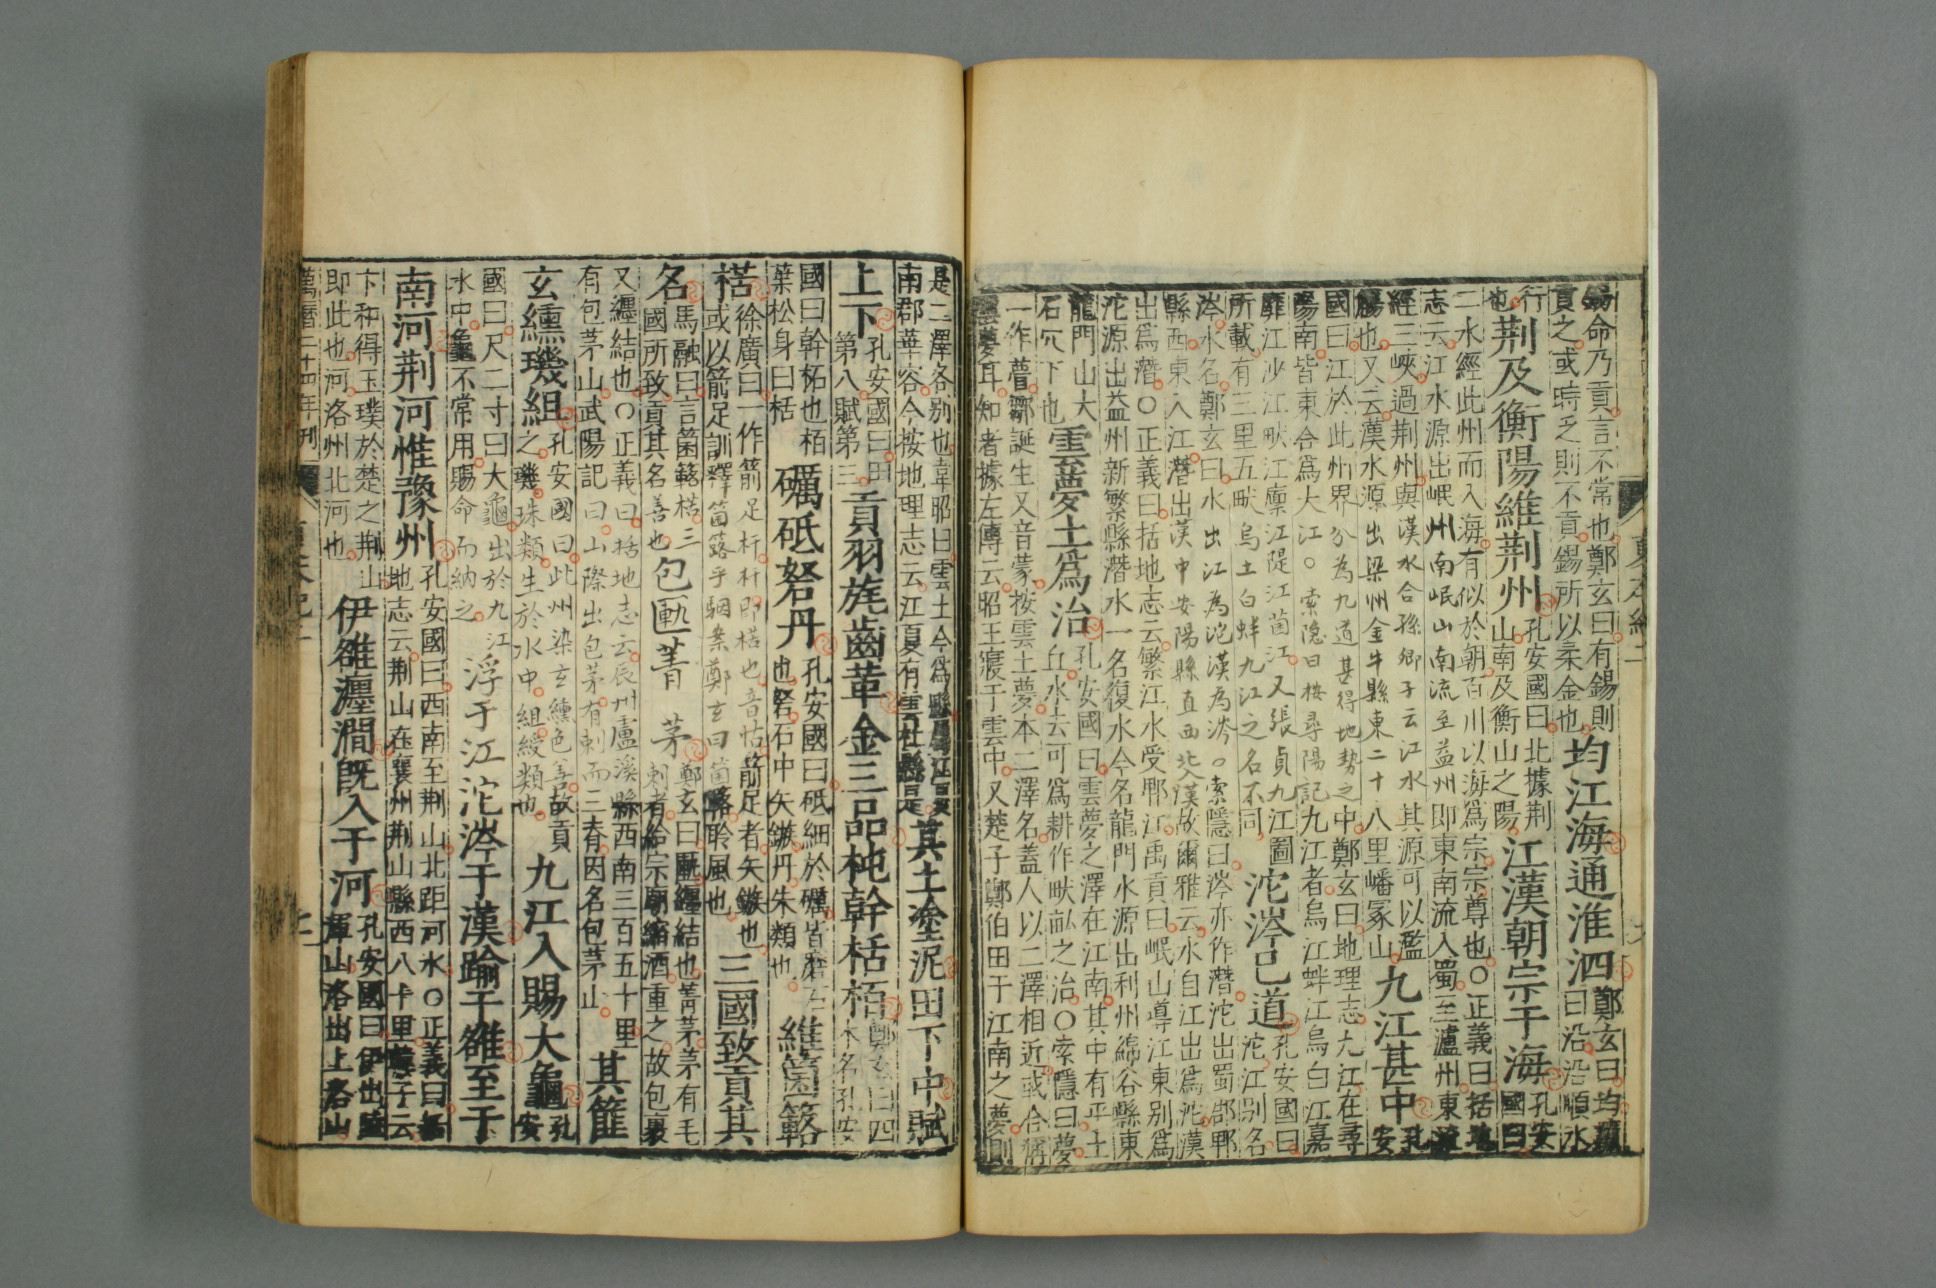 夏本紀二
錫命乃貢言不常也鄭玄曰有錫則
貢之或時乏則不貢錫所以柔金也
均江海通淮泗
鄭玄曰均讀
曰沿沿順水
行
也
荆及衡陽維荆州
孔安國曰北據荆
山南及衡山之陽
江漢朝宗于海
孔安
國曰
二水經此州而入海有似於朝百川以海爲宗宗尊也○正義曰括地
志云江水源出岷州南岷山南流至益州即東南流入蜀至瀘州東流
經三峽過荆州與漢水合孫卿子云江水其源可以濫
觴也又云漢水源出梁州金牛縣東二十八里嶓冢山
九江甚中
孔
安
國曰江於此州界分為九道甚得地勢之中鄭玄曰地理志九江在尋
陽南皆東合爲大江○索隐曰按尋陽記九江者烏江蚌江烏白江嘉
靡江沙江畎江廪江隄江箘江又張湞九江圖
所載有三里五畎烏土白蚌九江之名不同
沱涔已道
孔安國曰
沱江别名
涔水名鄭玄曰水出江為沱漢為涔○索隱曰涔亦作潛沱出蜀郡郫
縣西東入江潛出漢中安陽縣直西北入漢故爾雅云水自江出爲沱漢
出爲潛○正義曰括地志云繁江水受郫江禹貢曰岷山導江東别爲
沱源出益州新繁縣潛水一名復水今名龍門水源出利州綿谷縣東
龍門山大
石穴下也
雲夢土爲治
孔安國曰雲夢之澤在江南其中有平土
丘水去可爲耕作畎畝之治○索隱曰夢
一作瞢鄒誕生又音蒙按雲土夢本二澤名蓋人以二澤相近或合稱
雲夢耳知者據左傳云昭王寢于雲中又楚子鄭伯田于江南之夢則
是二澤各别也韋昭曰雲土今爲縣屬江夏
南郡華容今按地理志云江夏有雲杜縣是
其土塗泥田下中賦
上下
孔安國曰田
第八賦第三
貢羽旄齒革金三品杶幹栝栢
鄭玄曰四
木名孔安
國曰幹柘也栢
葉松身曰栝
礪砥砮丹
孔安國曰砥細於礪皆磨石
也砮石中矢鏃丹朱類也
維箘簬
楛
徐廣曰一作箭足杆杆即楛也音怙箭足者矢鏃也
或以箭足訓釋箘簬乎駰案鄭玄曰箘簬聆風也
三國致貢其
名
馬融曰言箘簬楛三
國所致貢其名善也
包匭菁茅
鄭玄曰匭纏結也菁茅茅有毛
刺者給宗廟縮酒重之故包裹
又纏結也○正義曰括地志云辰州盧溪縣西南三百五十里
有包茅山武陽記曰山際出包茅有刺而三春因名包茅山
其篚
玄纁璣組
孔安國曰此州染玄纁色善故貢
之璣珠類生於水中組綬類也
九江入賜大龜
孔
安
國曰尺二寸曰大龜出於九江
水中龜不常用賜命而納之
浮于江沱涔于漢踰于雒至于
南河荆河惟豫州
孔安國曰西南至荆山北距河水○正義曰括
地志云荆山在襄州荆山縣西八十里韓子云
卞和得玉璞於楚之荆山
即此也河洛州北河也
伊雒瀍澗旣入于河
孔安國曰伊出陸
渾山洛出上洛山
萬曆二十四年刊